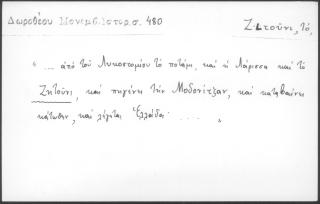 Δωροθέου Μονεμβ. Ιστορ. σ. 480
Ζητοῦνι, τό,
“ ... ἀπὸ τοῦ Λυκοστομίου τὸ ποτάμι, καὶ ἡ Λάρισσα καὶ τὸ
Ζητοῦνι, καὶ πηγαίνει τὴν Μοδονίτζαν, καὶ καταβαίνει
κάτωθεν, καὶ λέγεται Ἑλλάδα ..... „